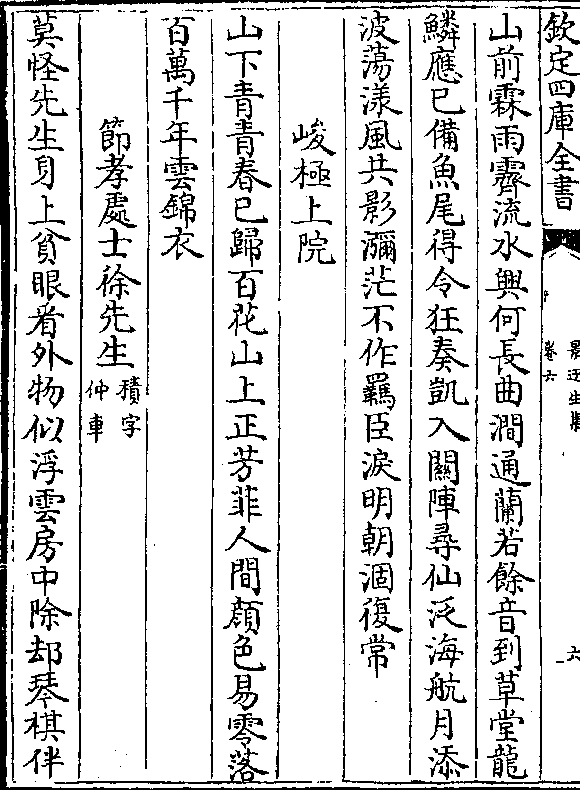 欽定四庫全書
卷六
六
山前霖雨霽流水興何長曲澗通蘭若餘音到草堂龍
鱗應已備魚尾得令狂奏凱入關陣尋仙泛海航月添
波蕩漾風共影瀰茫不作羈臣淚明朝涸復常
峻極上院
山下青青春已歸百花山上正芳菲人間顔色易零落
百萬千年雲錦衣
節孝處士徐先生積字仲車
莫怪先生身上貧眼看外物似浮雲房中除却琴棋伴